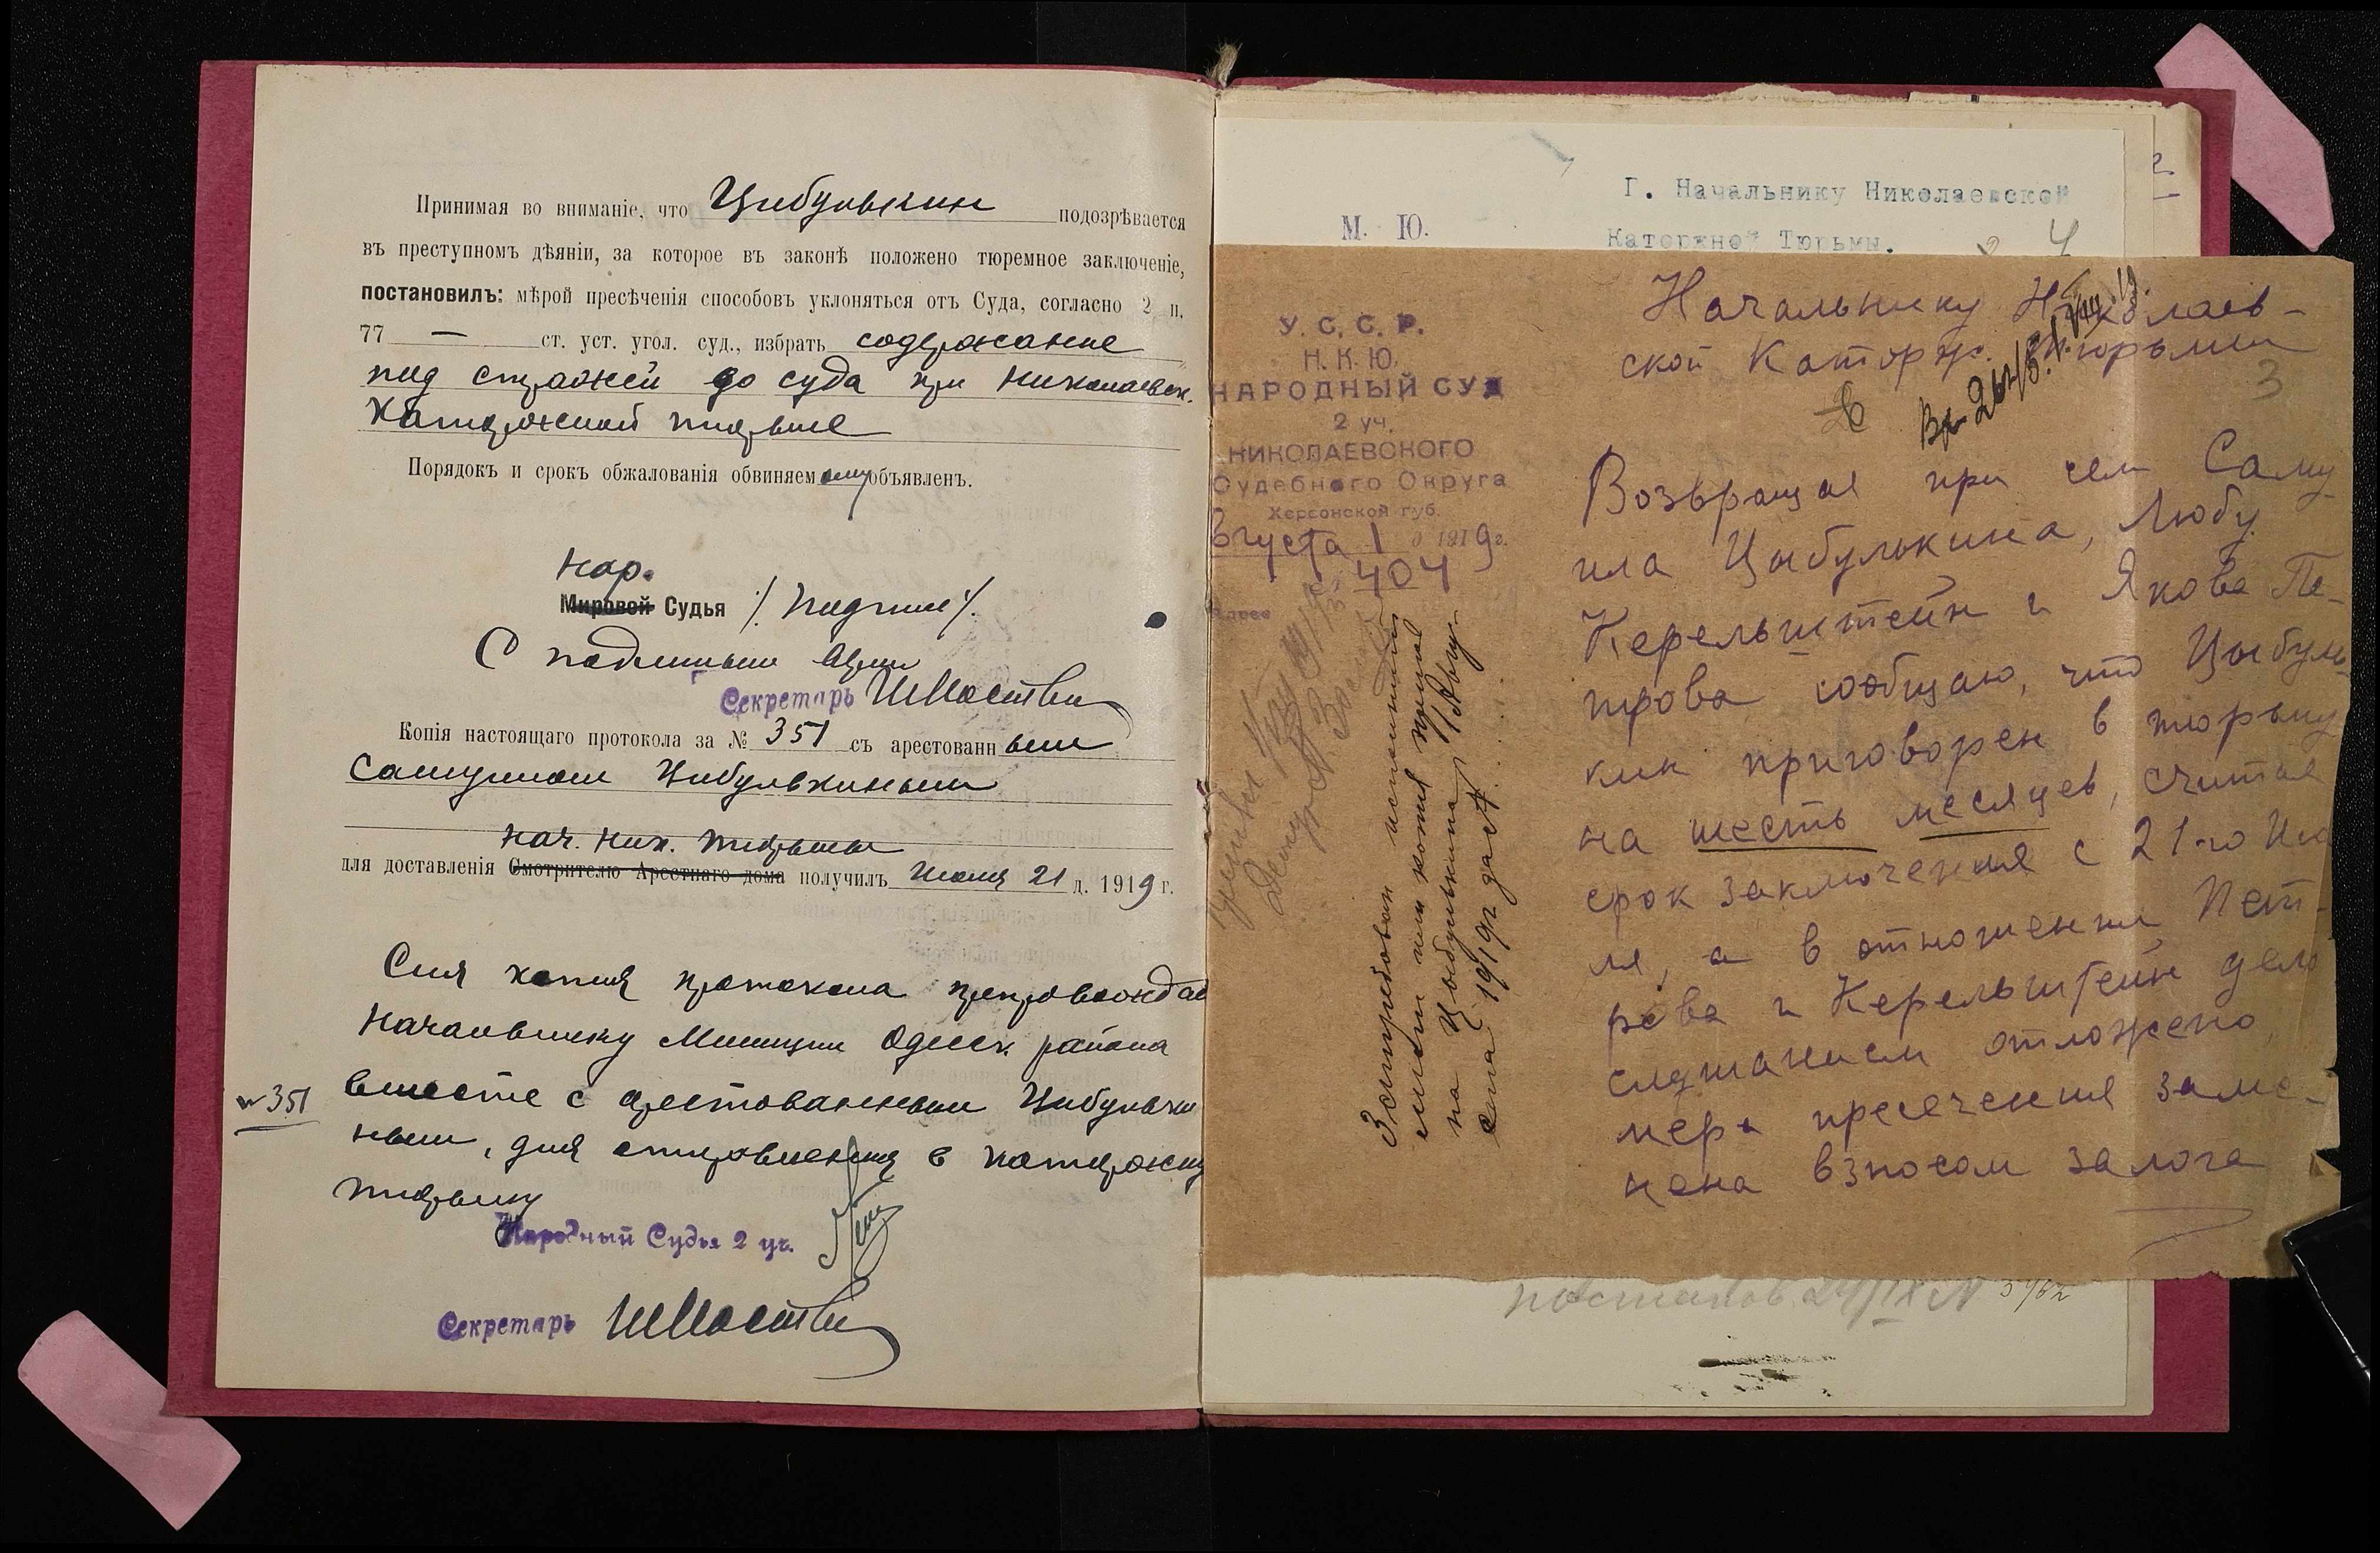 Принимая во вниманіе, что Цибулькин подозрѣвается
въ преступномъ дѣяніи, за которое въ законѣ положено тюремное заключеніе,
постановилъ: мѣрой пресѣченія способовъ уклоняться отъ Суда, согласно 2 п.
77 — ст. уст. угол. суд., избрать содержание
под стражей до суда при Николаевск.
Каторжной тюрьме
Порядокъ и срокъ обжалованія обвиняемому объявленъ.
Нар.
Мировой Судья /. Подпись /.
С подлинным верно
Секретарь
Копія настоящаго протокола за № 351 съ арестованным
Самуилом Цибулькиным
нач. Ник. тюрьмы
для доставленія Смотрителю Арестнаго дома получилъ Июля 21 д. 1919 г.
Сия копия протокола препровождае
Начальнику Милиции Одесск. района
№ 351 вместе с арестованным Цибульки
ным, для отправления в каторжную
тюрьму
Народный Судья 2 уч.
Секретарь
Г. Начальнику Николаевской
М. Ю.
Каторжной Тюрьмы.
4
У. С. С. Р.
Н. К. Ю.
НАРОДНЫЙ СУД
2 уч.
НИКОЛАЕВСКОГО
Судебного Округа
Херсонской губ.
вгуста 1 1919 г.
404
Начальнику Николаев-
ской Каторж. тюрьмы
3
Возвращая при сем Саму
ила Цыбулькина, Любу
Керельштейн и Якова Пе-
трова сообщаю, что Цыбуль
кин приговорен в тюрьму
на шесть месяцев, считая
срок заключения с 21-го Ию
ля, а в отношении Пет-
рова и Керельштейн дело
слушанием отложено,
мера пресечения заме-
нена взносом залога
Затребован исполнит
лист или копия пригов
на Цыбулькина 1 Авгу-
ста 1919 г.
постанов. 24/IX №